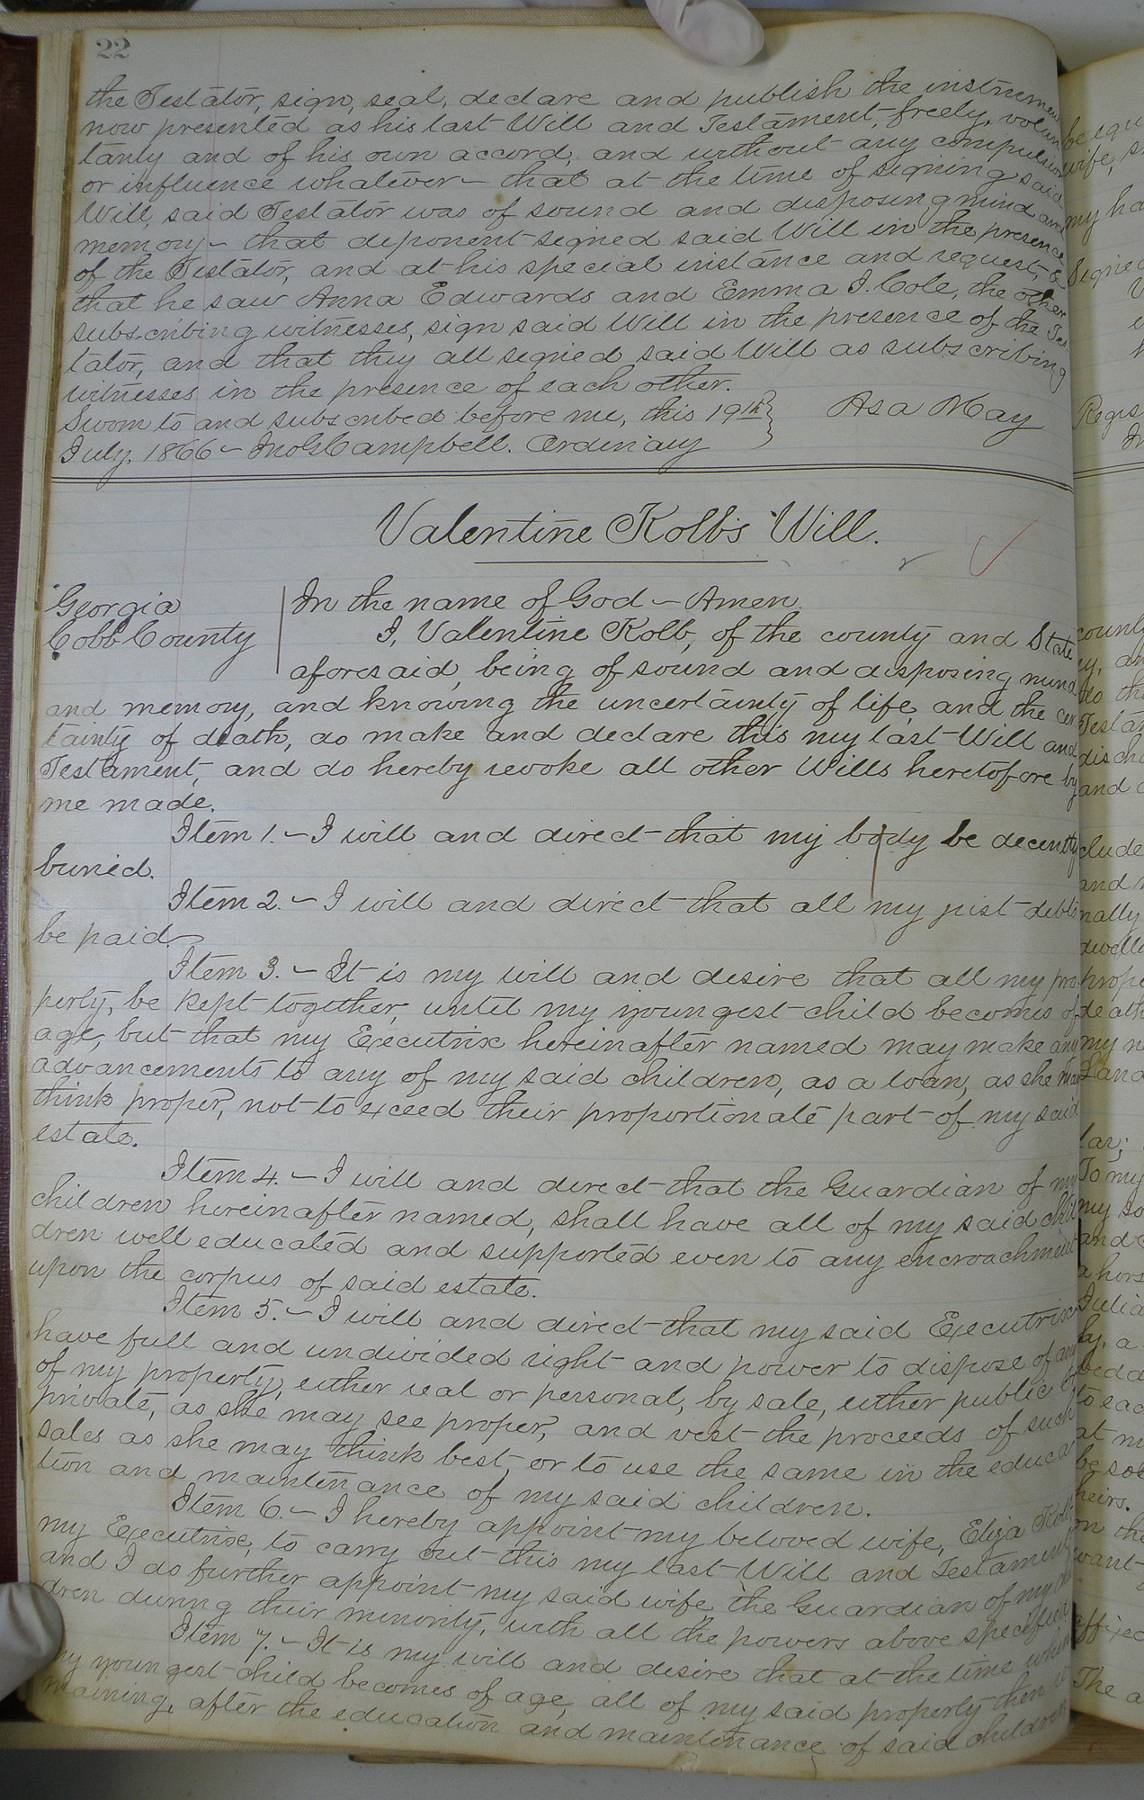 22
the Testator, sign, seal, declare and publish the instrumen
now presented as his last Will and Testament, freely, volun
tarily and of his own accord, and without any compulsion
or influence whatever – that at the time of signing said
Will, said Testator was of sound and disposing mind and
memory – that deponent signed said Will in the presence
of the Testator, and at his special instance and request, &
that he saw Anna Edwards and Emma J. Cole, the other
subscribing witnesses, sign said Will in the presence of the Tes
tator, and that they all signed said Will as subscribing
witnesses in the presence of each other.
Sworn to and subscribed before me, this 19th } Asa May
July, 1866 – Jno G Campbell. Ordinary
Valentine Kolb's Will.
Georgia
Cobb County
In the name of God – Amen.
I, Valentine Kolb, of the county and State
aforesaid, being of sound and disposing mind
and memory, and knowing the uncertainty of life, and the cer
tainty of death, do make and declare this my last Will and
Testament, and do hereby revoke all other Wills heretofore by
me made.
Item 1. – I will and direct that my body be decently
buried.
Item 2. – I will and direct that all my just debts
be paid.
Item 3. – It is my will and desire that all my pro
perty, be kept together, until my youngest child becomes of
age, but that my Executrix hereinafter named may make any
advancements to any of my said children, as a loan, as she may
think proper, not to exceed their proportionate part of my said
estate.
Item 4. – I will and direct that the Guardian of my
children hereinafter named, shall have all of my said chil
dren well educated and supported even to any encroachment
upon the corpus of said estate.
Item 5. – I will and direct that my said Executrix
have full and undivided right and power to dispose of any
of my property, either real or personal, by sale, either public or
private, as she may see proper, and vest the proceeds of such
sales as she may think best, or to use the same in the educa
tion and maintenance of my said children.
Item 6. – I hereby appoint my beloved wife, Eliza Kolb
my Executrix, to carry out this my last Will and Testament,
and I do further appoint my said wife the Guardian of my chil
dren during their minority, with all the powers above specified
Item 7. – It is my will and desire that at the time when
my youngest child becomes of age, all of my said property then re
maining, after the education and maintenance of said children